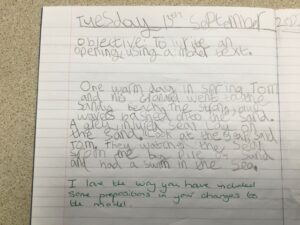 Tuesday 13th September
objective: to write an
opening using a model text.
One warm day in spring, Tom
and his went to the
sandy beach. The strong, rough
waves bashed onto the sand.
A seal lay on
the sand. Look at the seal said
Tom. They watched the seal
on the big pile sand
and had a swim in the sea.
I love the way you have included
some prepositions in your changes to
the model.